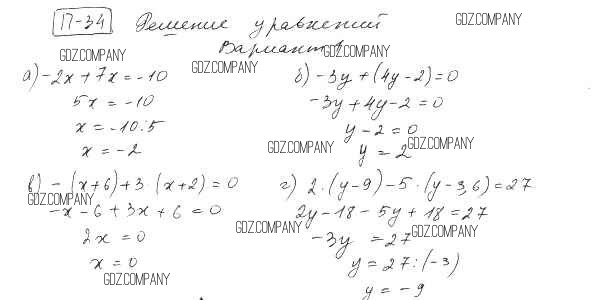 П-34 Решение уравнений
Вариант 1
а) -2x + 7x = -10
5x = -10
x = -10:5
x = -2
б) -3y + (4y - 2) = 0
-3y + 4y - 2 = 0
y - 2 = 0
y = 2
в) -(x+6) + 3·(x+2) = 0
-x - 6 + 3x + 6 = 0
2x = 0
x = 0
г) 2·(y-9) - 5·(y-3,6) = 27
2y - 18 - 5y + 18 = 27
-3y = 27
y = 27:(-3)
y = -9
GDZ.COMPANY
GDZ.COMPANY
GDZ.COMPANY
GDZ.COMPANY
GDZ.COMPANY
GDZ.COMPANY
GDZ.COMPANY
GDZ.COMPANY
GDZ.COMPANY
GDZ.COMPANY